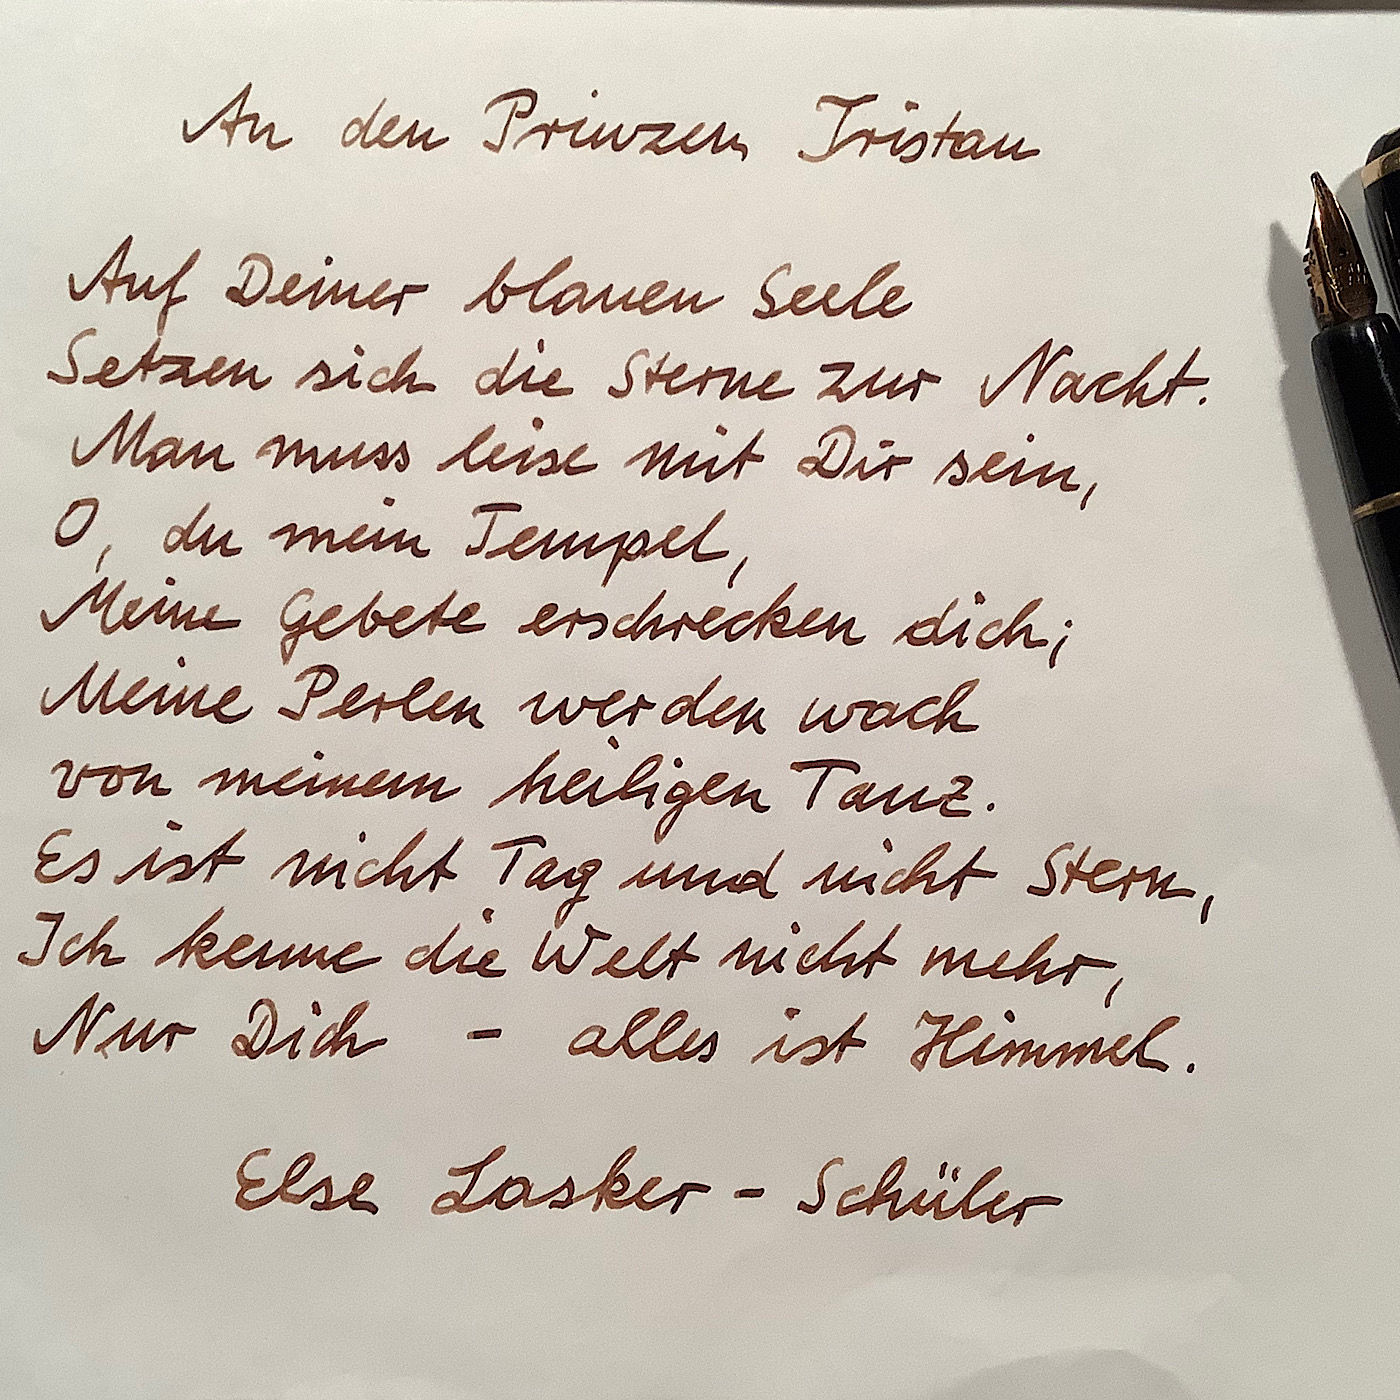 An den Prinzen Tristan
Auf Deiner blauen Seele
Setzen sich die Sterne zur Nacht.
Man muss leise mit Dir sein,
O, du mein Tempel,
Meine Gebete erschrecken dich;
Meine Perlen werden wach
von meinem heiligen Tanz.
Es ist nicht Tag und nicht Stern,
Ich kenne die Welt nicht mehr,
Nur Dich - alles ist Himmel.
Else Lasker-Schüler